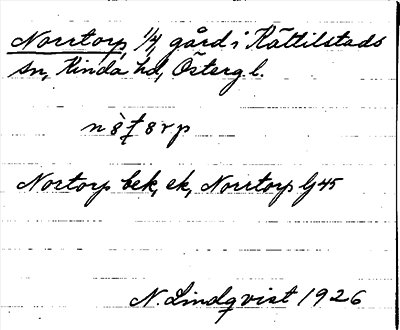 Norrtorp, 1/4, gård i Kättilstads
sn, Kinda hd, Östergl.
Nortorp bek, ek, Norrtorp lj 45
N. Lindqvist 1926